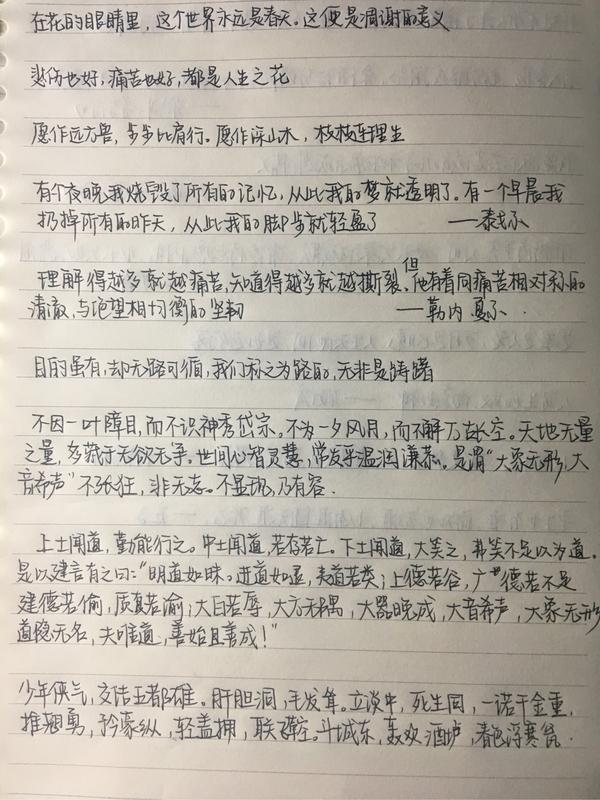 在花的眼睛里，这个世界永远是春天。这便是凋谢的意义
悲伤也好，痛苦也好，都是人生之花
愿作远方兽，步步比肩行。愿作深山木，枝枝连理生
有个夜晚我烧毁了所有的记忆，从此我的梦就透明了。有一个早晨我
扔掉所有的昨天，从此我的脚步就轻盈了 ——泰戈尔
理解得越多就越痛苦，知道得越多就越撕裂。但他有着同痛苦相对称的
清澈，与绝望相均衡的坚韧 ——勒内 夏尔.
目的虽有，却无路可循，我们称之为路的，无非是踌躇
不因一叶障目，而不识神秀岱宗。不为一夕风月，而不解万古长空。天地无量
之量，多藏于无欲无争。世间心智灵慧，常发乎温润谦恭。是谓“大象无形，大
音希声”不张狂，非无志。不显功，乃有容.
上士闻道，勤能行之。中士闻道，若存若亡。下士闻道，大笑之，弗笑不足以为道。
是以建言有之曰：“明道如昧。进道如退，夷道若类；上德若谷，广德若不足
建德若偷，质真若渝；大白若辱，大方无隅，大器晚成，大音希声，大象无形
道隐无名，夫唯道，善始且善成！”
少年侠气，交结五都雄。肝胆洞，毛发耸。立谈中，死生同，一诺千金重，
推翘勇，矜豪纵，轻盖拥，联飞鞚。斗城东，轰饮酒垆，春色浮寒瓮.